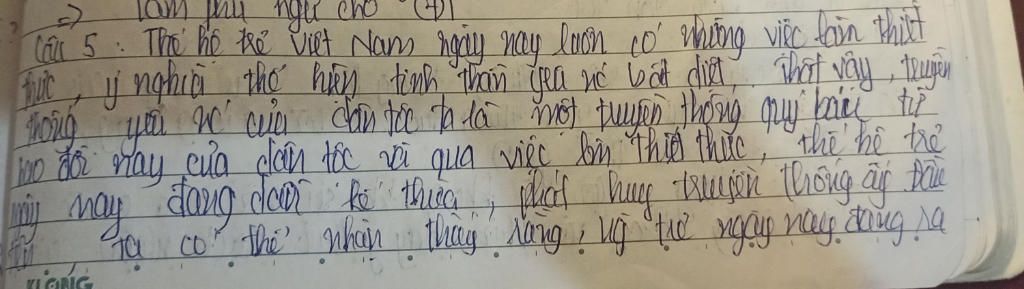 => làm phu ngữ cho (+)
Câu 5: Thế hệ trẻ Việt Nam ngày nay luôn có những việc làm thiết
thực, ý nghĩa thể hiện tinh thần yêu nc bất diệt. Thật vậy, truyền
thống yêu nc của dân tộc ta là một truyền thống quý báu từ
bao đời nay của dân tộc và qua việc làm thiết thực, thế hệ trẻ
ngày nay đang dần kế thừa, phát huy truyền thống ấy. Đầu
ta có thể nhận thấy rằng, ngày nay đang ra